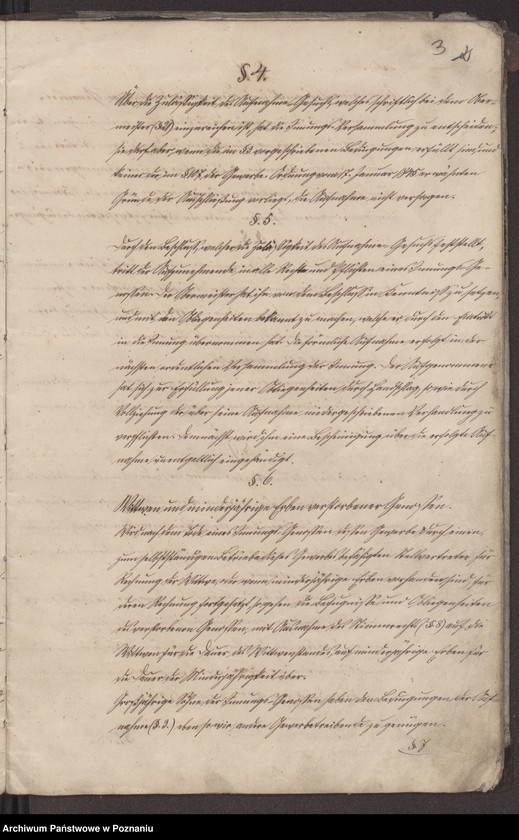 3
§.4.
Über die Zulässigkeit des Aufnahme-Gesuchs, welches schriftlich bei dem Ober-
meister (§2) einzureichen ist, hat die Innungs-Versammlung zu entscheiden;
sie darf aber, wenn die im §2 vorgeschriebenen Bedingungen erfüllt sind, und
keiner der im §107 der Gewerbe-Ordnung vom 17. Januar 1845 erwähnten
Gründe der Ausschließung vorliegt, die Aufnahme nicht versagen.
§.5.
Durch den Beschluß, welcher die Zulässigkeit des Aufnahme-Gesuchs feststellt,
tritt der Aufzunehmende in alle Rechte und Pflichten eines Innungs-Ge-
nossen. Der Obermeister hat ihn von dem Beschluß in Kenntniß zu setzen,
und mit den Obliegenheiten bekannt zu machen, welche er durch den Eintritt
in die Innung übernommen hat. Die förmliche Aufnahme erfolgt in der
nächsten ordentlichen Versammlung der Innung. Der Aufgenommene
hat sich zur Erfüllung jener Obliegenheiten durch Handschlag, so wie durch
Vollziehung der über seine Aufnahme niedergeschriebenen Verhandlung zu
verpflichten. Demnächst wird ihm eine Bescheinigung über die erfolgte Auf-
nahme unentgeltlich eingehändigt.
§.6.
Wittwen und minderjährige Erben verstorbener Genossen.
Wird nach dem Tode eines Innungs-Genossen dessen Gewerbe durch einen
zum selbstständigen Betriebe dieses Gewerbes befähigten Stellvertreter für
Rechnung der Wittwe, oder wenn minderjährige Erben vorhanden sind, für
deren Rechnung fortgesetzt, so gehen die Befugnisse und Obliegenheiten
des verstorbenen Genossen, mit Ausnahme des Stimmrechts (§8) auf die
Wittwen für die Dauer des Wittwenstandes, auf minderjährige Erben für
die Dauer der Minderjährigkeit über.
Großjährige Söhne der Innungs-Genossen haben den Bedingungen der Auf-
nahme (§.3.) eben so wie andere Gewerbetreibende zu genügen.
§7
Archiwum Państwowe w Poznaniu